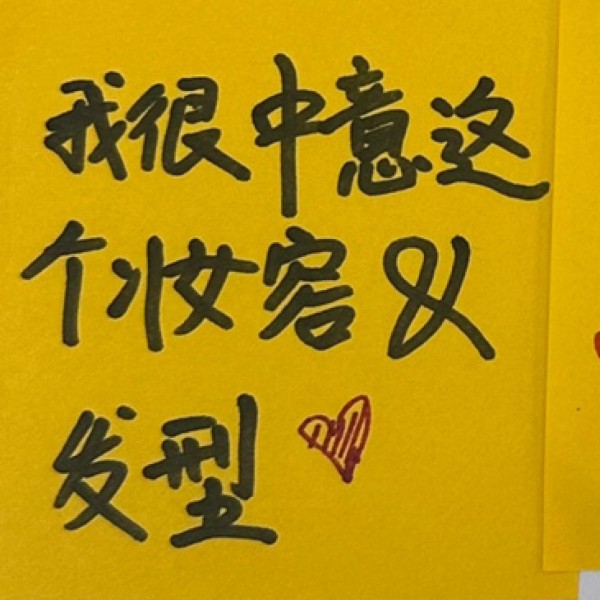 我很中意这
个妆容&
发型